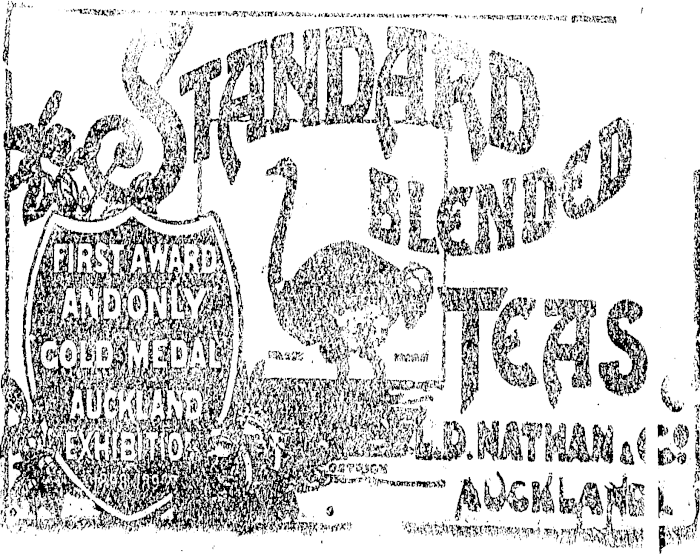 STANDARD
BLENDED
TEAS
FIRST AWARD
AND ONLY
GOLD MEDAL
AUCKLAND
EXHIBITION
L.D. NATHAN & Co
AUCKLAND